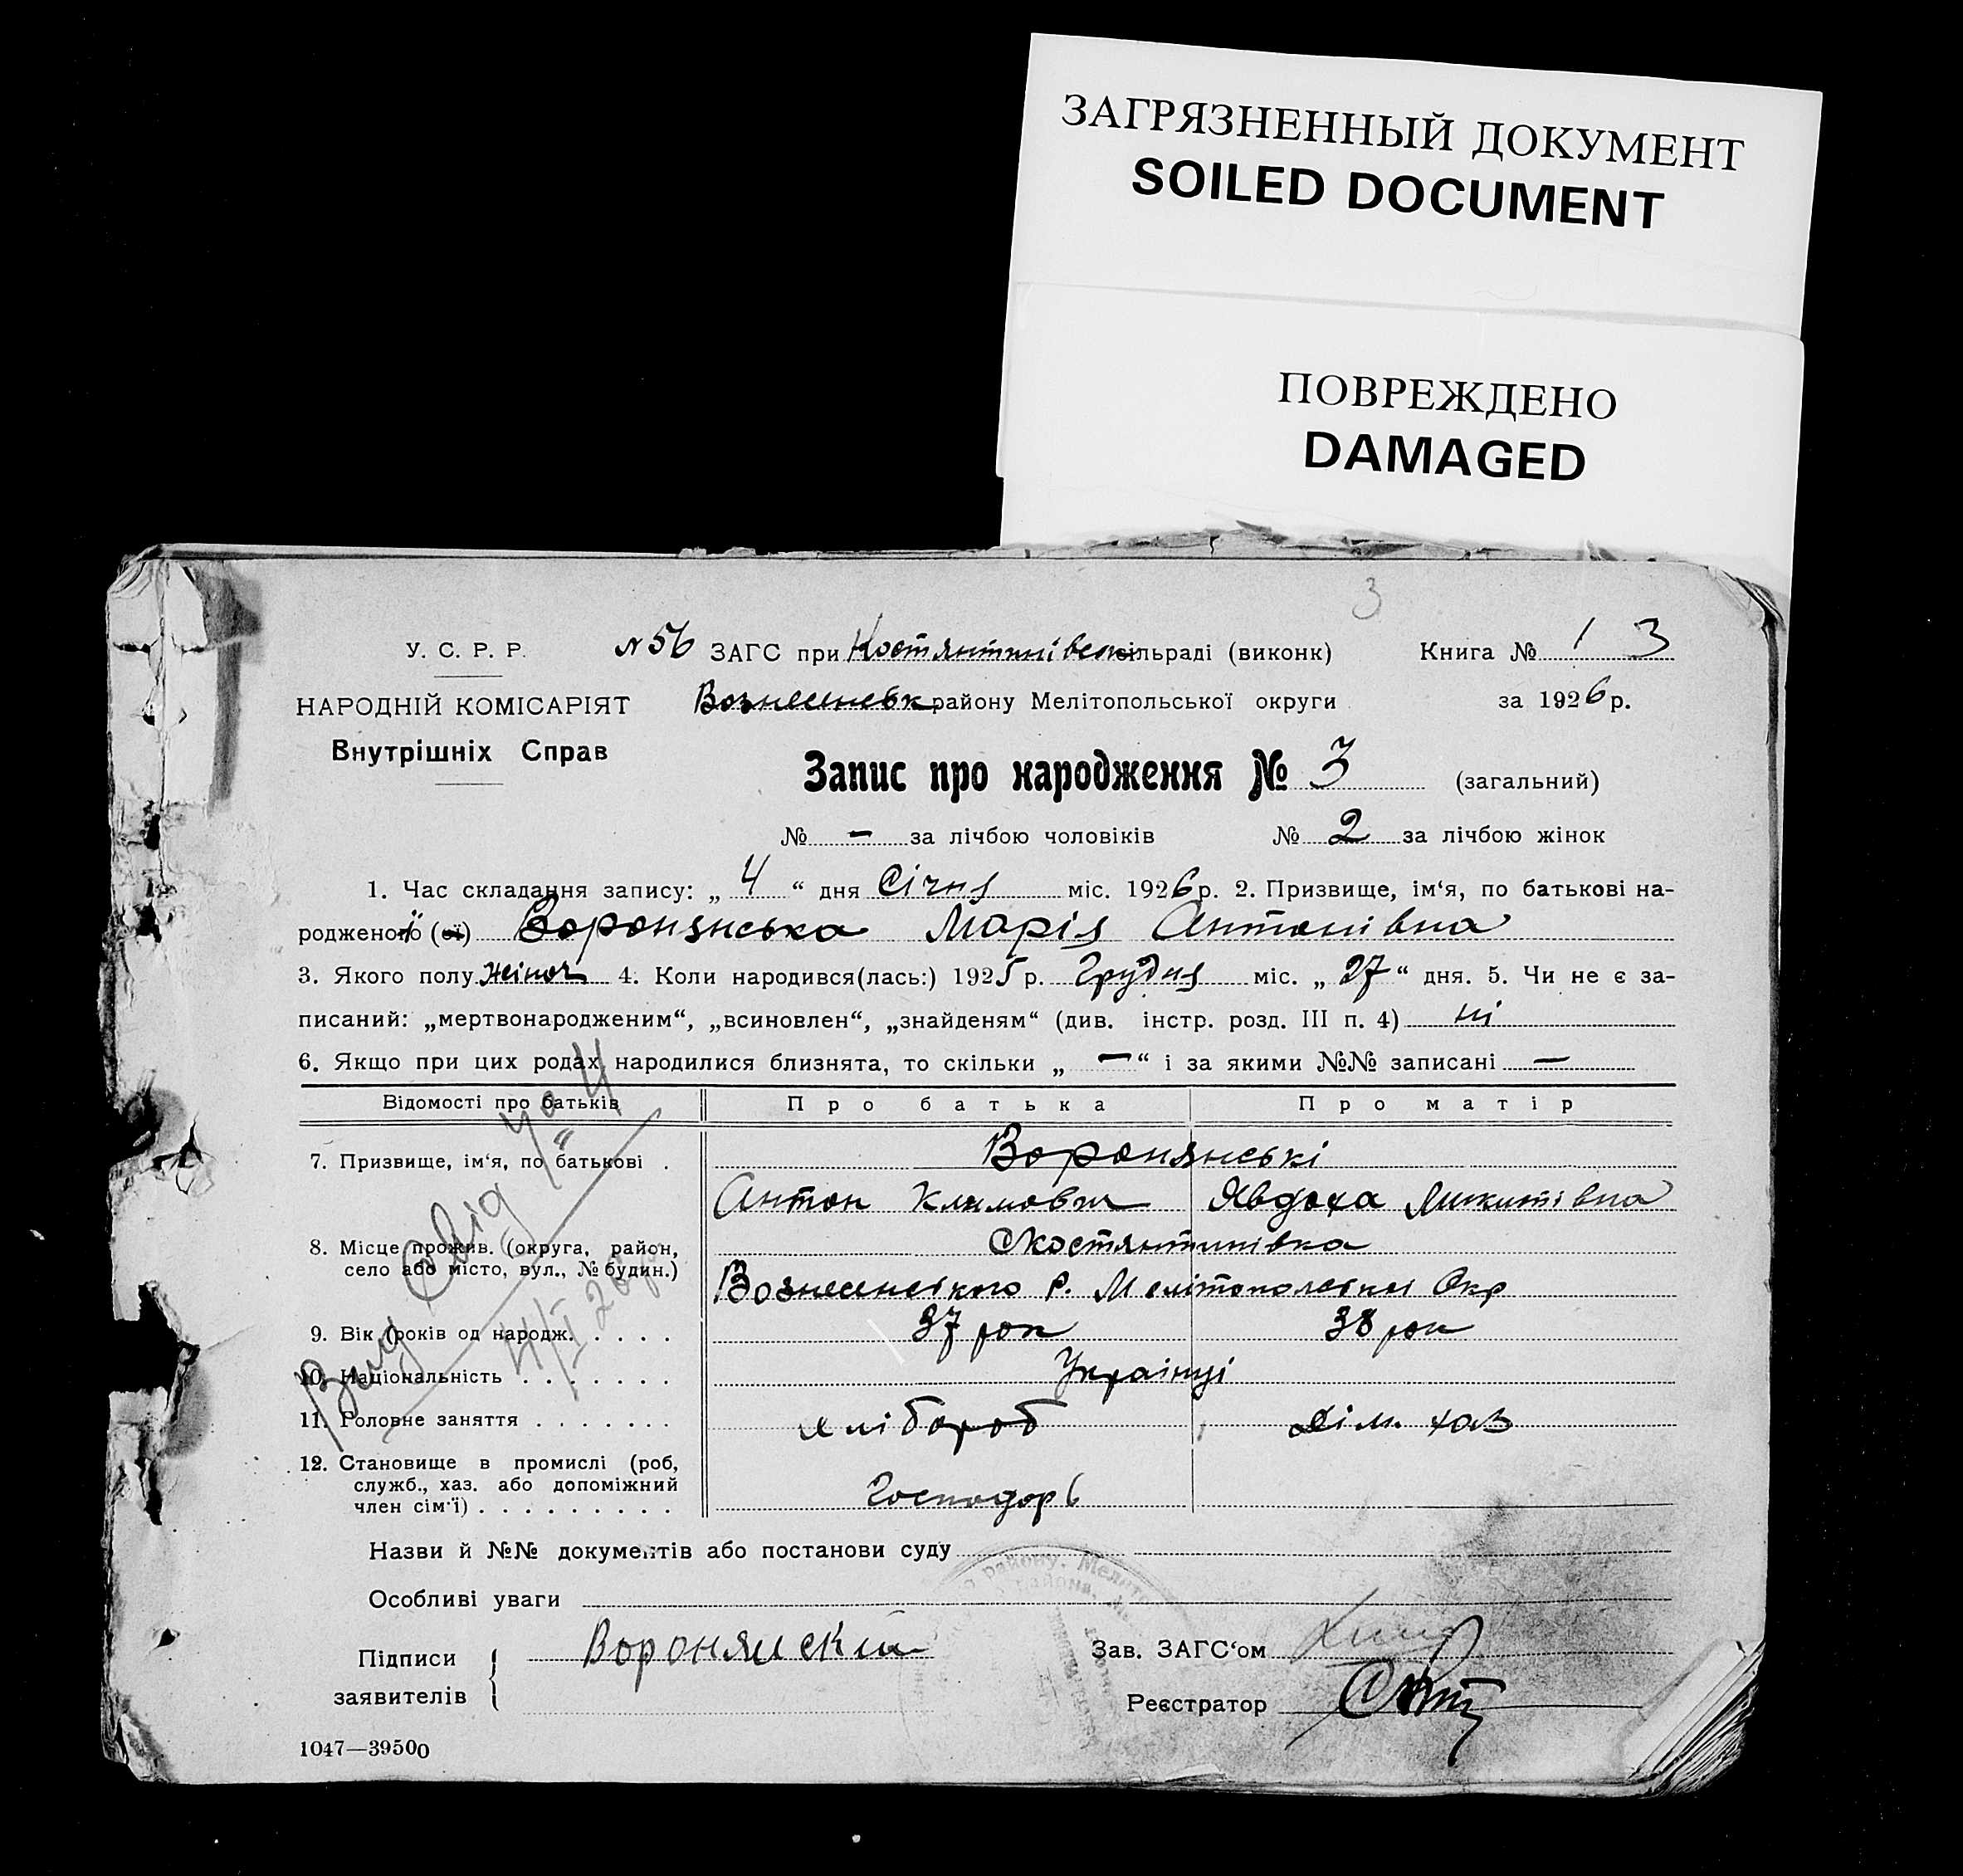 ЗАГРЯЗНЕННЫЙ ДОКУМЕНТ
SOILED DOCUMENT
ПОВРЕЖДЕНО
DAMAGED
3
У. С. Р. Р. №56 ЗАГС при Костянтинівськ сільраді (виконк) Книга № 1 3
НАРОДНІЙ КОМІСАРІЯТ Вознесенськ району Мелітопольської округи за 1926 р.
Внутрішніх Справ
Запис про народження № 3 (загальний)
№ — за лічбою чоловіків № 2 за лічбою жінок
1. Час складання запису: „ 4 “ дня Січня міс. 1926 р. 2. Призвище, ім‘я, по батькові на-
родженого (ої) Воронянська Марія Антонівна
3. Якого полу жіноч 4. Коли народився(лась:) 1925 р. Грудня міс. „ 27 “ дня. 5. Чи не є за-
писаний: „мертвонародженим“, „всиновлен“, „знайденям“ (див. інстр. розд. III п. 4) ні
6. Якщо при цих родах народилися близнята, то скільки „ — “ і за якими №№ записані —
Відомості про батьків Про батька Про матір
7. Призвище, ім‘я, по батькові . Воронянські
Антон Климович Явдоха Микитівна
8. Місце прожив. (округа, район, село або місто, вул., № будин.) С Костянтинівка
Вознесенського Р. Мелітопольської Окр
9. Вік (років од народж. . . . . 37 рок 38 рок
10. Національність . . . . . . . Українці
11. Головне заняття . . . . . . . хлібороб дім. хаз
12. Становище в промислі (роб,
служб., хаз. або допоміжний
член сім‘ї) . . . . . . . . . Господорь
Вид Свід 4/I 26р
Назви й №№ документів або постанови суду
Особливі уваги
Підписи заявителів Воронянский
Зав. ЗАГС‘ом
Реєстратор
1047—39500